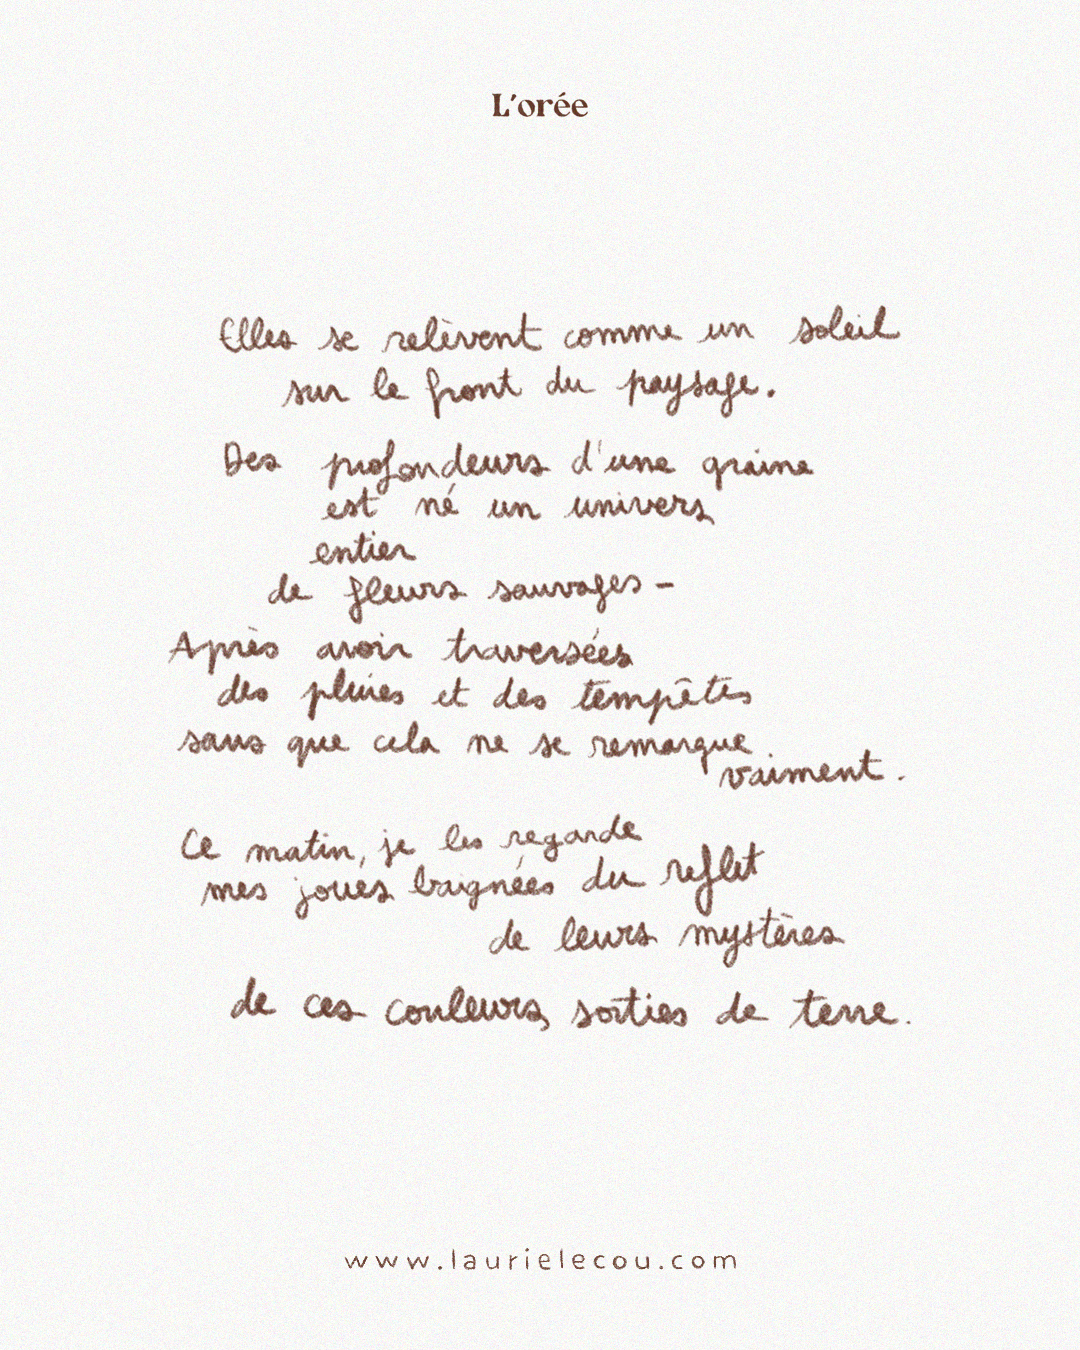 L'orée
Elles se relèvent comme un soleil
sur le front du paysage.
Des profondeurs d'une graine
est né un univers
entier
de fleurs sauvages -
Après avoir traversées
des pluies et des tempêtes
sans que cela ne se remarque
vraiment.
Ce matin, je les regarde
mes joues baignées du reflet
de leurs mystères
de ces couleurs sorties de terre.
www.laurielecou.com